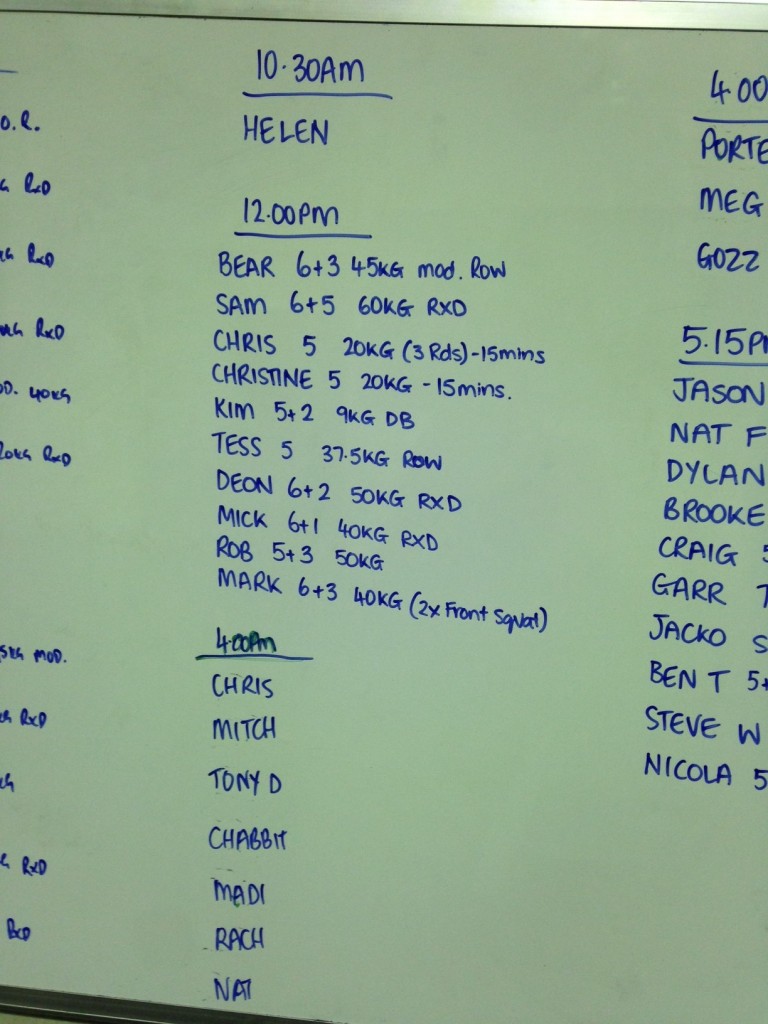 O.R.
RxD
RxD
RxD
40KG
20KG RxD
MOD.
RxD
RxD
RxD
10.30AM
HELEN
12.00PM
BEAR 6+3 45KG mod. Row
SAM 6+5 60KG RXD
CHRIS 5 20KG (3 Rds)-15mins
CHRISTINE 5 20KG - 15mins.
KIM 5+2 9KG DB
TESS 5 37.5KG ROW
DEON 6+2 50KG RXD
MICK 6+1 40KG RXD
ROB 5+3 50KG
MARK 6+3 40KG (2x Front Squat)
4.00Pm
CHRIS
MITCH
TONY D
CHABBIT
MADI
RACH
NAT
4.00
PORTE
MEG
GOZZ
5.15P
JASON
NAT F
DYLAN
BROOKE
CRAIG 5
GARR
JACKO S
BEN T 5+
STEVE W
NICOLA 5